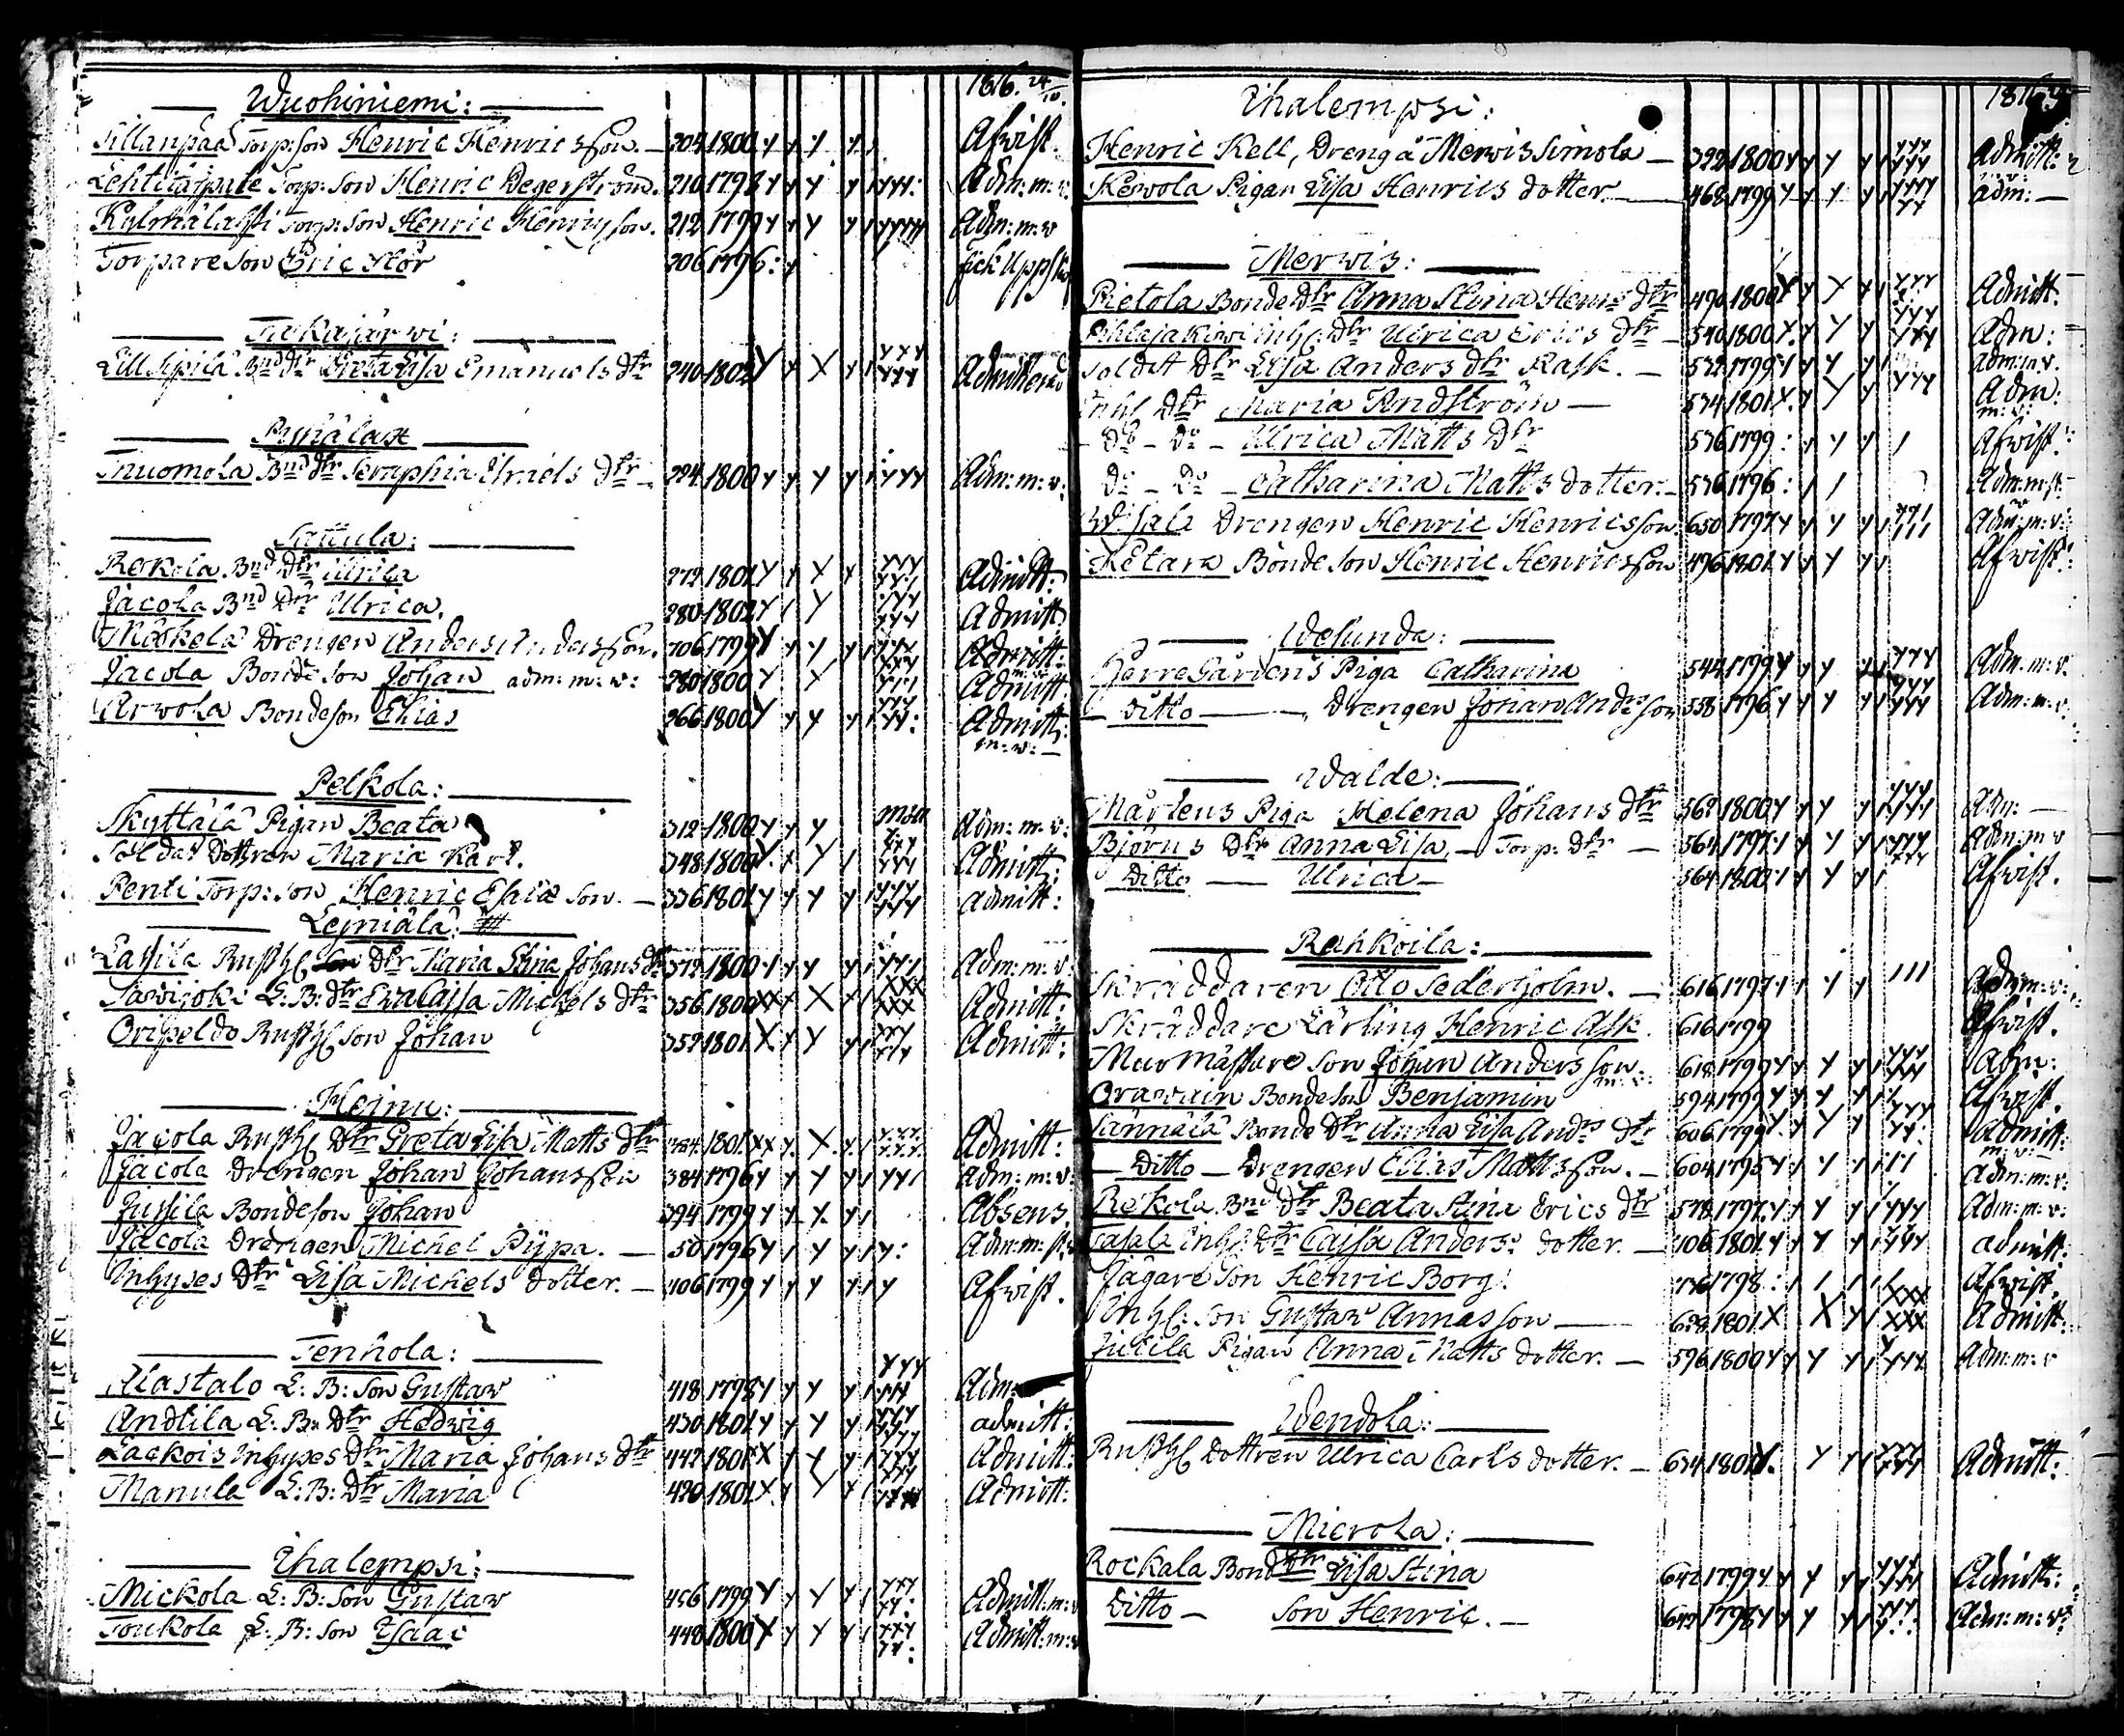 1816. 24/10.
Wuohiniemi:
Sillanpää Torp: son Henric Henricsson. — 204 1800 Afwist.
Lehtiärpate Torp: son Henric Degerström. 210 1798 Adm: m: v:
Kylmälahti Torp: son Henric Henricsson. 212 1799 Adm: m: v
Torpare son Eric Stor 206 1796 fick Uppskof
Takajärwi:
Lill Sipilä Bnd dtr Greta Lisa Emanuels dtr 240 1802 Admitteras
Pyhälax
Tuomola Bnd dtr Seraphia Israels dtr — 224 1800 Adm: m: v:
Sattula:
Rekola Bnd Dtr Ulrica 272 1802 Admitt:
Jacola Bnd Dtr Ulrica. 280 1802 Admitt
Mäskelä Drengen Anders Andersson. 706 1799 Admitt:
Jacola Bonde son Johan adm: m: v: 280 1800 Admitt:
Arwola Bondeson Elias 266 1800 Admitt:
m: v: —
Pelkola:
Skyttälä Pigan Beata 312 1800 Adm: m: v:
Soldat Dottren Maria Karl. 348 1800 Admitt:
Penti Torp: son Henric Esaiæ son. — 336 1801 Admitt:
Leiniälä:
Lassila Rusth: dtr Maria Stina Johans dtr 372 1800 Adm: m: v:
Sawijoki L: B: dtr Eva Caisa Michels dtr 356 1800 Admitt:
Orispeldo Rusth: son Johan 352 1801 Admitt:
Heinu:
Jacola Rusth: Dtr Greta Lisa Matts dtr 384 1801 Admitt:
Jacola Drengen Johan Johansson 384 1796 Adm: m: v:
Jussila Bondeson Johan 394 1799 Absens.
Jacola Drengen Michel Pijpa. — 50 1796 Adm: m:
Inhyses Dtr Lisa Michels dotter. — 406 1799 Afwist.
Tenhola:
Alastalo L: B: son Gustaw 418 1798 Adm:
Andlila L: B: Dtr Hedwig 430 1801 admitt:
Lackois Inhyses Dtr Maria Johans dtr 442 1801 Admitt:
Manula L: B: Dtr Maria 420 1801 Admitt:
Ihalempsi:
Mickola L: B: son Gustaw 456 1799 Admitt: m: v
Toukola L: B: son Isaac 448 1800 Admitt: m: v
1816
Ihalempsi:
Henric Kell, Dreng å Merwis Simola — 322 1800 Admitt:
Kewola Pigan Lisa Henrics dotter. — 468 1799 adm: —
Merwis:
Pietola Bonde Dtr Anna Stina Henrs dtr 490 1800 Admitt:
Pihlajakiwi Inh: Dtr Ulrica Erics dtr — 540 1800 Adm:
Soldt Dtr Lisa Anders dtr Rask. — 532 1799 adm: m v.
Inhs Dtr Maria Rndström — 534 1801 Adm:
m: v:
Do — Do — Ulrica Matts Dtr 536 1799 Afwist:
Do — Do — Catharina Matts dotter. — 536 1796
Drengen Henric Henricsson 650 1797 Adm: m: v:
Ketara Bonde son Henric Henricsson 496 1801 Afwist:
Wesunda:
HerreGårdens Piga Catharina 544 1799 Adm: m: v:
ditto — Drengen Johan Anderson 558 1796 Adm: m: v:
Walde:
Mårtens Piga Helena Johans Dtr 562 1800 Adm: —
Björns Dtr Anna Lisa, — Torp: Dtr — 564 1797 Adm: m v
Ditto — Ulrica — 564 1800 Afwist.
Rahkoila:
Skräddaren Otto Sederholm. — 616 1797 Adm: m: v:
Skräddare Lärling Henric Ask. 616 1799 Afwist.
Murmästare son Johan Andersson. 618 1799 Adm:
m: v:
Orawain Bondeson Benjamin 594 1799 Afwist.
Sännälä Bonde Dtr Anna Lisa Andrs dtr 606 1799 Admitt:
m: v: —
— Ditto — Drengen Elias Mattsson. — 604 1795 Adm: m: v:
Rekola Bnd Dtr Beata Stina Erics Dtr 578 1797 Adm: m: v:
Inhs Dtr Cajsa Anders dotter. — 706 1801 admitt:
Jägare Son Henric Borg. 736 1798 Afwist.
Inhs: son Gustaw Annasson — 1801 Admitt:
Juttila Pigan Anna Matts dotter. — 596 1800 Adm: m: v
Wendola:
Rusth: Dottren Ulrica Carls dotter. — 634 1801 Admitt:
Mierola:
Rockala Bond Dtr Lisa Stina 642 1799 Admitt:
Ditto — son Henric. — 642 1798 Adm: m: v: